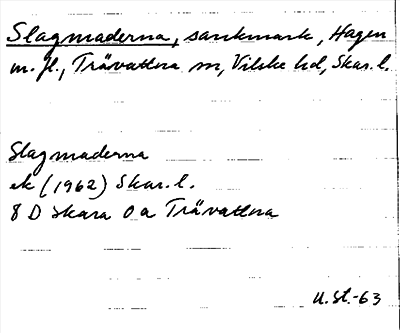 Slagmaderna, sankmark, Hagen
m. fl., Trävattna sn, Vilske hd, Skar. l.
Slagmaderna
ek (1962) Skar. l.
8 D Skara 0 a Trävattna
U. St. -63